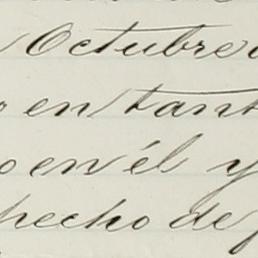 Octubre
en tant
o en él y
pecho de